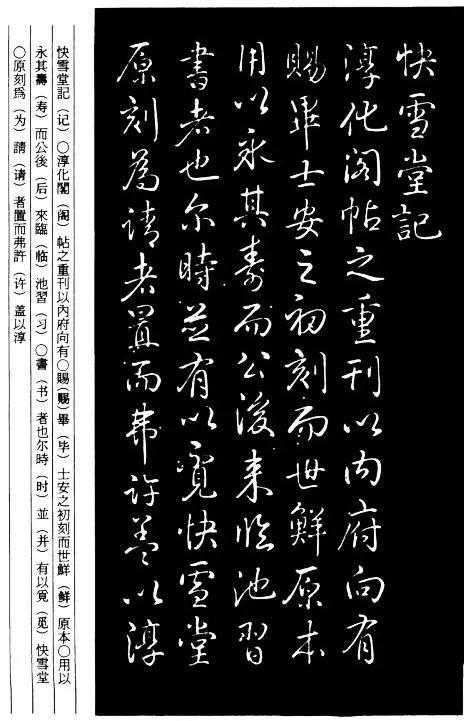 快雪堂記
淳化阁帖之重刊以内府向有
賜畢士安之初刻而世鮮原本
用以永其寿而公後来临池習
書者也尔時並有以覓快雪堂
原刻為请者置而弗许盖以淳
快雪堂記（记）〇淳化閣（阁）帖之重刊以內府向有〇賜（赐）畢（毕）士安之初刻而世鮮（鲜）原本〇用以
永其壽（寿）而公後（后）來臨（临）池習（习）〇書（书）者也尔時（时）並（并）有以覓（觅）快雪堂
〇原刻爲（为）請（请）者置而弗許（许）盖以淳